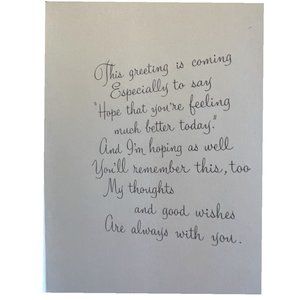 This greeting is coming
Especially to say
"Hope that you're feeling
much better today."
And I'm hoping as well
You'll remember this, too
My thoughts
and good wishes
Are always with you.